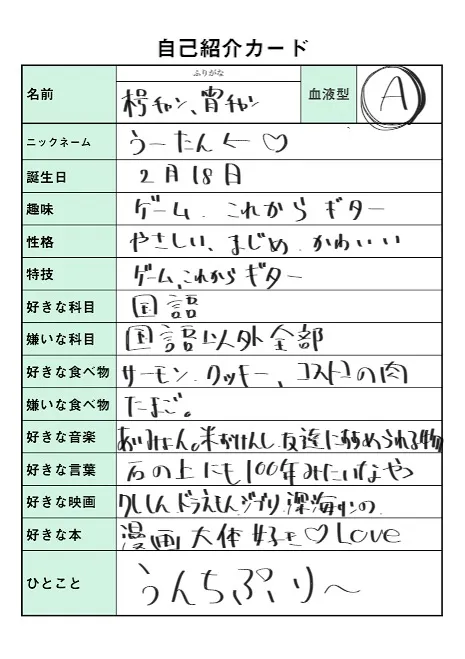 自己紹介カード
ふりがな
名前 チャン、宵チャン 血液型 A
ニックネーム うーたん ← ♡
誕生日 2月18日
趣味 ゲーム. これから ギター
性格 やさしい、まじめ. かわいい
特技 ゲーム、これから ギター
好きな科目 国語
嫌いな科目 国語以外全部
好きな食べ物 サーモン. クッキー、コストコの肉
嫌いな食べ物 たまご。
好きな音楽 あいみょん。米おけんし. 友達におすすめられる物
好きな言葉 石の上にも100年みたいなやつ
好きな映画 クレしん ドラえもん ジブリ. 深海
好きな本 漫画 大体好き♡Love
ひとこと うんちぷりー